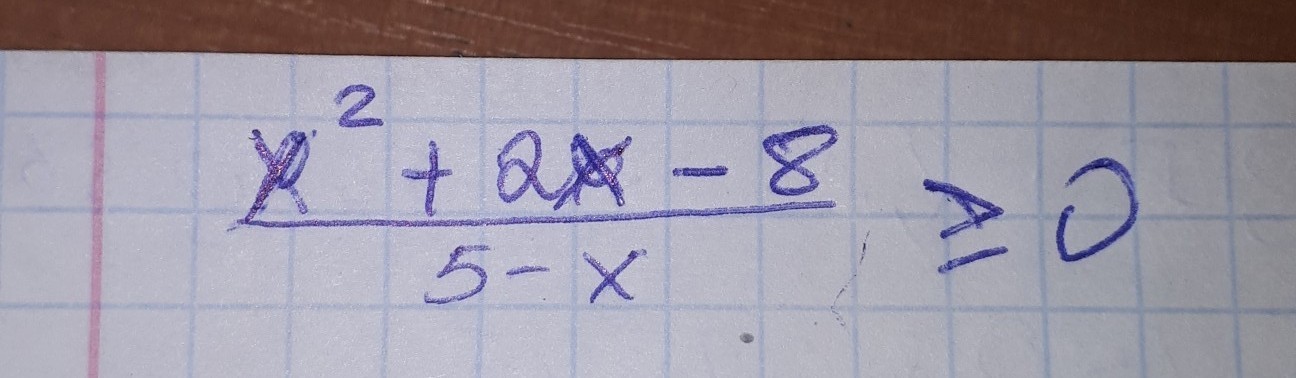 x² + 2x - 8
5 - x
≥ 0